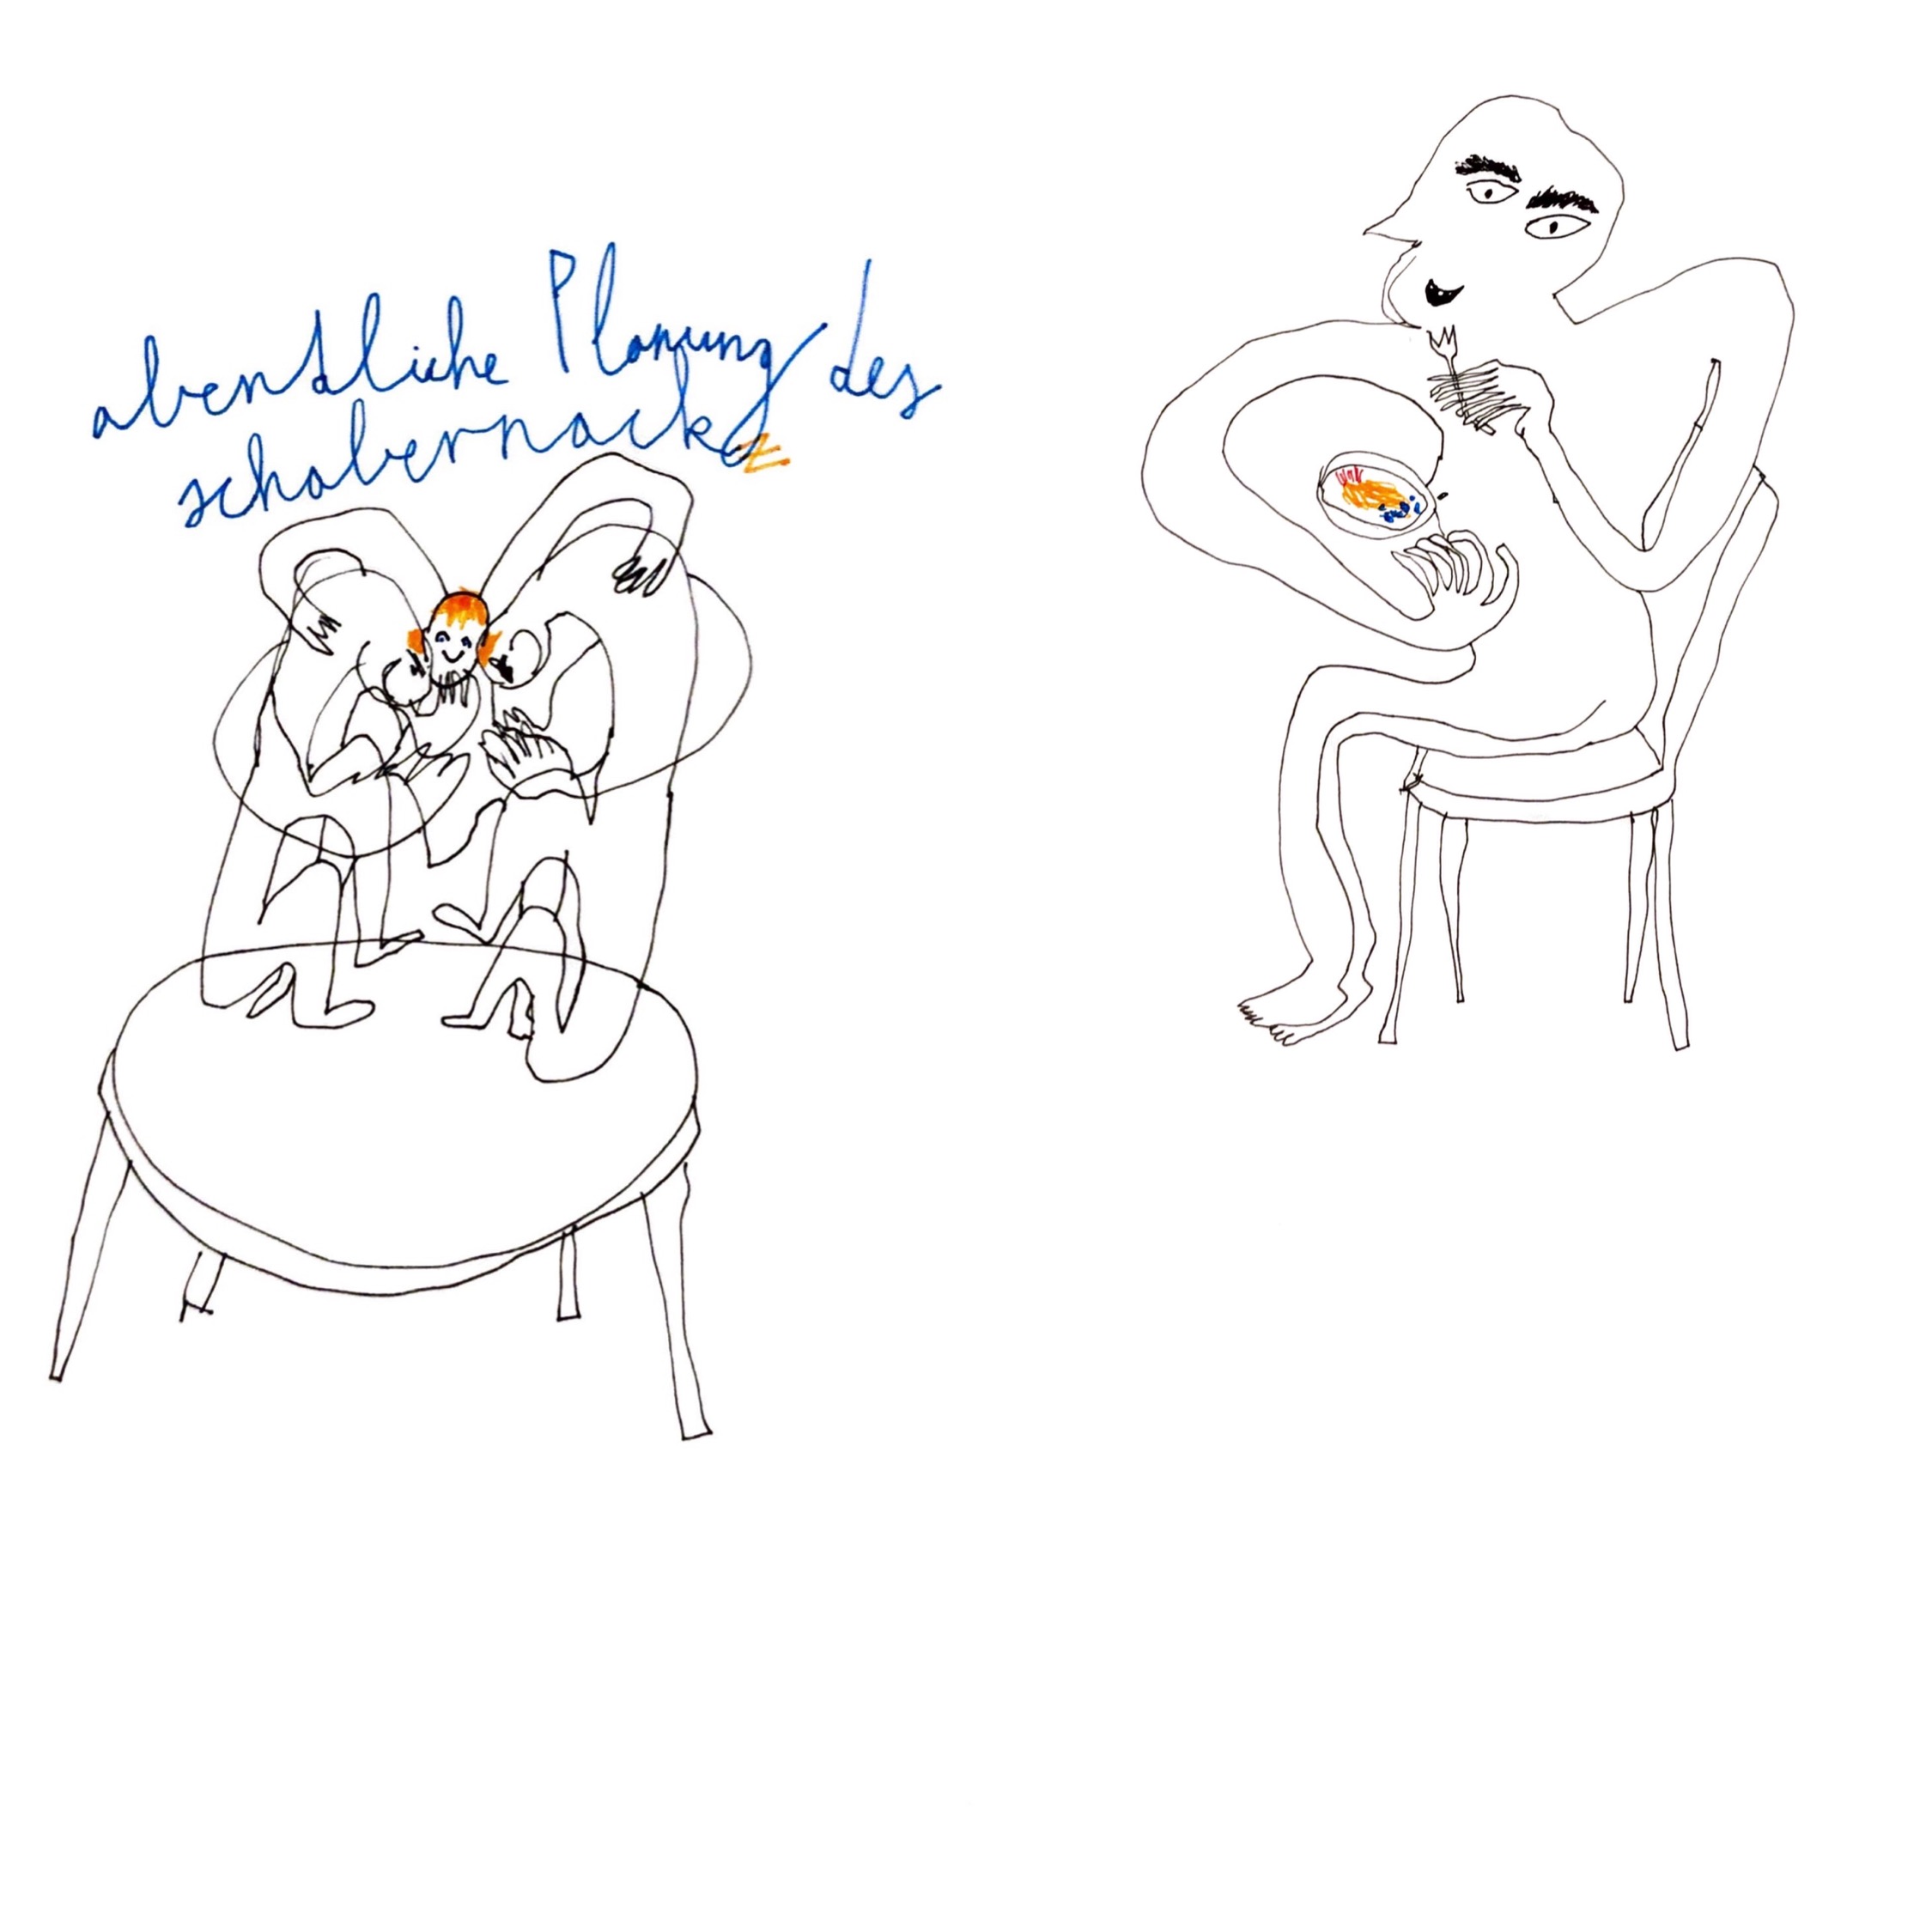 abendliche Planung des
schabernackz